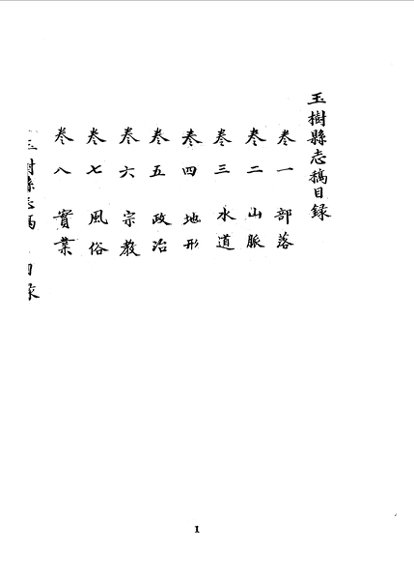 玉樹縣志稿目録
卷一 部落
卷二 山脈
卷三 水道
卷四 地形
卷五 政治
卷六 宗教
卷七 風俗
卷八 實業
玉樹縣志稿 目録
1